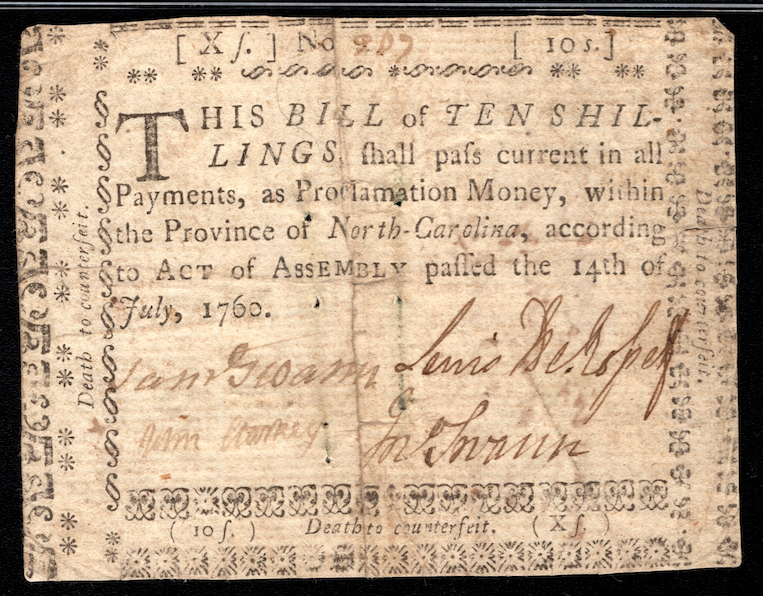 [ X ſ. ] No 207 [ 10 s. ]
THIS BILL of TEN SHIL-
LINGS, ſhall paſs current in all
Payments, as Proclamation Money, within
the Province of North-Carolina, according
to ACT of ASSEMBLY paſſed the 14th of
July, 1760.
Sam Swann Lewis De Roſset
John Starkey Jno Swann
( 10 ſ. ) Death to counterfeit. ( X ſ. )
Death to counterfeit.
Death to counterfeit.